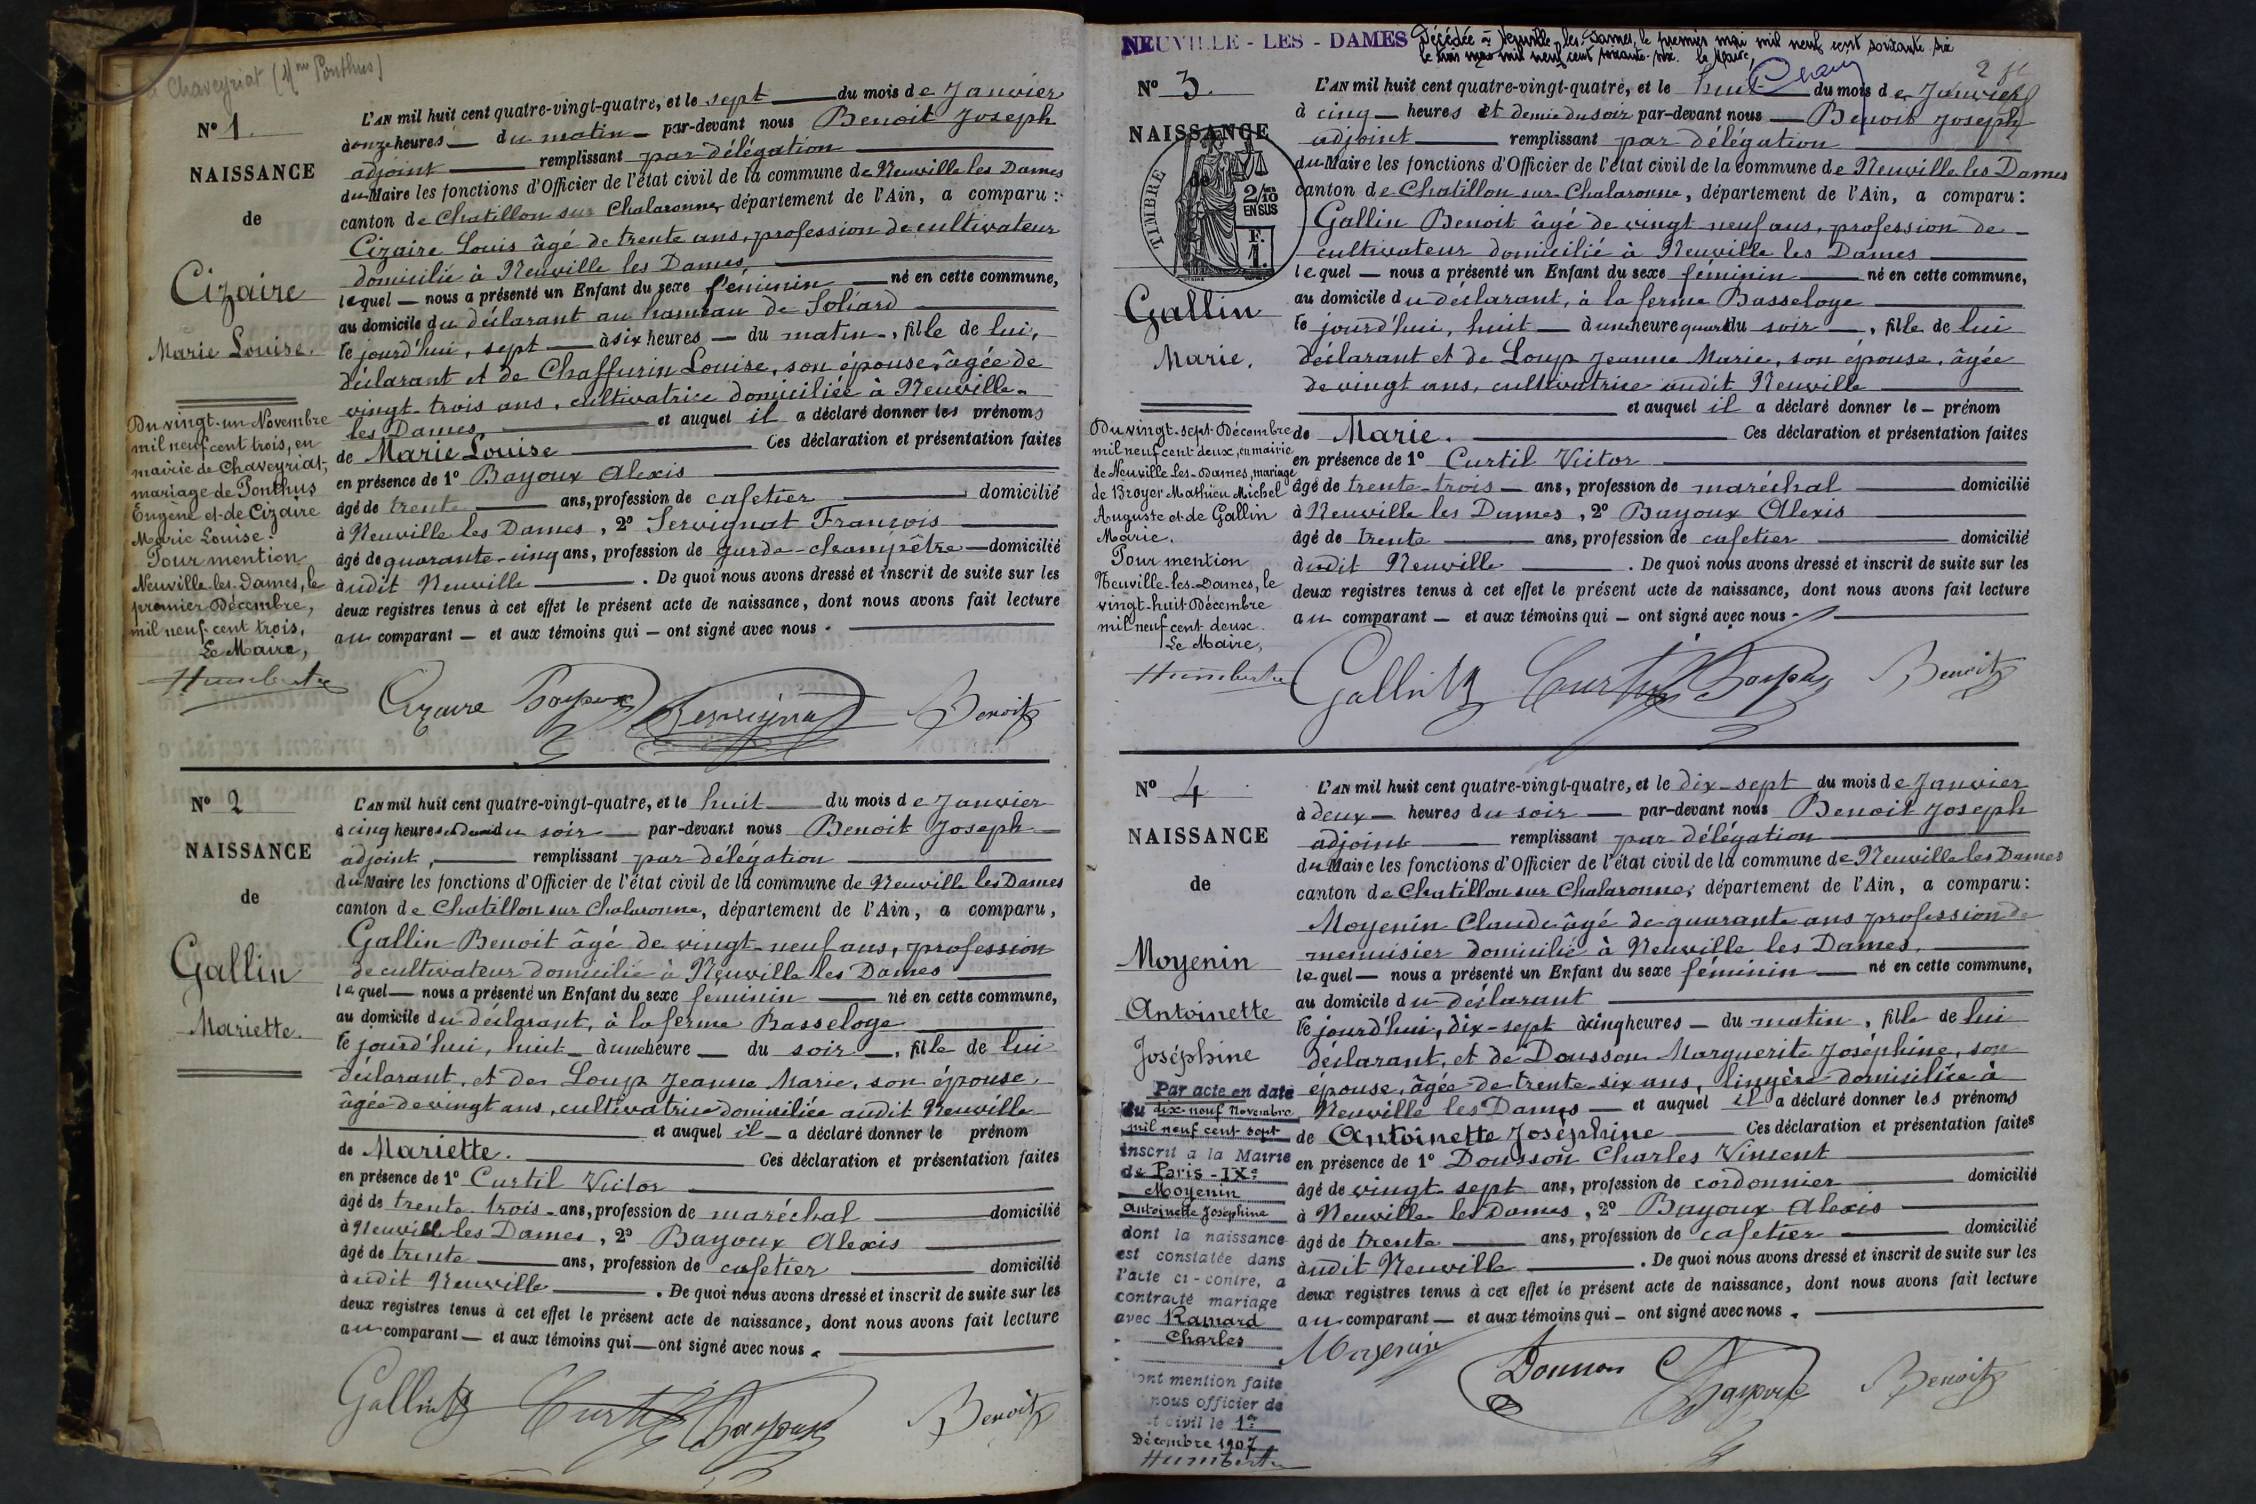 à Chaveyriat (Mme Ponthus)
N° 1
NAISSANCE
de
Cizaire
Marie Louise.
Du vingt-un Novembre
mil neuf cent trois, en
mairie de Chaveyriat,
mariage de Ponthus
Eugène et de Cizaire
Marie Louise.
Pour mention
Neuville-les-Dames, le
premier Décembre,
mil neuf cent trois.
Le Maire,
Humbert
L'AN mil huit cent quatre-vingt-quatre, et le sept du mois de Janvier
à onze heures du matin par-devant nous Benoit Joseph
adjoint remplissant par délégation
du Maire les fonctions d'Officier de l'état civil de la commune de Neuville les Dames
canton de Chatillon sur Chalaronne, département de l'Ain, a comparu :
Cizaire Louis âgé de trente ans, profession de cultivateur
domicilié à Neuville les Dames,
lequel nous a présenté un Enfant du sexe féminin né en cette commune,
au domicile du déclarant au hameau de Soliard
le jourd'hui, sept à six heures du matin, fille de lui,
déclarant et de Chaffurin Louise, son épouse, âgée de
vingt-trois ans, cultivatrice domiciliée à Neuville-
les Dames, et auquel il a déclaré donner les prénoms
de Marie Louise Ces déclaration et présentation faites
en présence de 1° Bayoux Alexis
âgé de trente ans, profession de cafetier domicilié
à Neuville les Dames, 2° Servignat François
âgé de quarante-cinq ans, profession de garde-champêtre domicilié
audit Neuville. De quoi nous avons dressé et inscrit de suite sur les
deux registres tenus à cet effet le présent acte de naissance, dont nous avons fait lecture
au comparant et aux témoins qui ont signé avec nous.
Cizaire Bayoux Servignat Benoit
N° 2
NAISSANCE
de
Gallin
Mariette.
L'AN mil huit cent quatre-vingt-quatre, et le huit du mois de Janvier
à cinq heures et demie du soir par-devant nous Benoit Joseph
adjoint, remplissant par délégation
du Maire les fonctions d'Officier de l'état civil de la commune de Neuville les Dames
canton de Chatillon sur Chalaronne, département de l'Ain, a comparu,
Gallin Benoit âgé de vingt-neuf ans, profession
de cultivateur domicilié à Neuville les Dames
lequel nous a présenté un Enfant du sexe féminin né en cette commune,
au domicile du déclarant, à la ferme Basseloge
le jourd'hui, huit à une heure du soir, fille de lui
déclarant, et de Loup Jeanne Marie, son épouse,
âgée de vingt ans, cultivatrice domiciliée audit Neuville
et auquel il a déclaré donner le prénom
de Mariette. Ces déclaration et présentation faites
en présence de 1° Curtil Victor
âgé de trente-trois ans, profession de maréchal domicilié
à Neuville les Dames, 2° Bayoux Alexis
âgé de trente ans, profession de cafetier domicilié
audit Neuville. De quoi nous avons dressé et inscrit de suite sur les
deux registres tenus à cet effet le présent acte de naissance, dont nous avons fait lecture
au comparant et aux témoins qui ont signé avec nous.
Gallin B Curtil Bayoux Benoit
NEUVILLE - LES - DAMES Décédée à Neuville-les-Dames, le premier mai mil neuf cent soixante six
le trois mai mil neuf cent soixante-six. Le Maire,
2
N° 3.
NAISSANCE
de
TIMBRE
2/10 EN SUS
F. 1.
Gallin
Marie.
Du vingt-sept Décembre
mil neuf cent deux, en mairie
de Neuville-Les-Dames, mariage
de Broyer Mathieu Michel
Auguste et de Gallin
Marie.
Pour mention
Neuville-les-Dames, le
vingt-huit Décembre
mil neuf cent deux.
Le Maire,
Humbert
L'AN mil huit cent quatre-vingt-quatre, et le huit du mois de Janvier
à cinq heures et demie du soir par-devant nous Benoit Joseph
adjoint remplissant par délégation
du Maire les fonctions d'Officier de l'état civil de la commune de Neuville les Dames
canton de Chatillon-sur-Chalaronne, département de l'Ain, a comparu :
Gallin Benoit âgé de vingt neuf ans, profession de
cultivateur domicilié à Neuville les Dames
lequel nous a présenté un Enfant du sexe féminin né en cette commune,
au domicile du déclarant, à la ferme Basseloge
le jourd'hui, huit à une heure quart du soir, fille de lui
déclarant et de Loup Jeanne Marie, son épouse, âgée
de vingt ans, cultivatrice audit Neuville
et auquel il a déclaré donner le prénom
de Marie. Ces déclaration et présentation faites
en présence de 1° Curtil Victor
âgé de trente-trois ans, profession de maréchal domicilié
à Neuville les Dames, 2° Bayoux Alexis
âgé de trente ans, profession de cafetier domicilié
audit Neuville. De quoi nous avons dressé et inscrit de suite sur les
deux registres tenus à cet effet le présent acte de naissance, dont nous avons fait lecture
au comparant et aux témoins qui ont signé avec nous.
Gallin B Curtil Bayoux Benoit
N° 4
NAISSANCE
de
Moyenin
Antoinette
Joséphine
Par acte en date
du dix-neuf Novembre
mil neuf cent sept
inscrit a la Mairie
de Paris - IXe
Moyenin
Antoinette Joséphine
dont la naissance
est constatée dans
l'acte ci-contre, a
contracté mariage
avec Ramard
Charles
ont mention faite
nous officier de
t civil le 1er
Décembre 1907
Humbert
L'AN mil huit cent quatre-vingt-quatre, et le dix-sept du mois de Janvier
à deux heures du soir par-devant nous Benoit Joseph
adjoint remplissant par délégation
du Maire les fonctions d'Officier de l'état civil de la commune de Neuville les Dames
canton de Chatillon sur Chalaronne, département de l'Ain, a comparu :
Moyenin Claude âgé de quarante ans profession de
menuisier domicilié à Neuville les Dames.
lequel nous a présenté un Enfant du sexe féminin né en cette commune,
au domicile du déclarant
le jourd'hui, dix-sept à cinq heures du matin, fille de lui
déclarant, et de Dousson Marguerite Joséphine, son
épouse, âgée de trente-six ans, lingère domiciliée à
Neuville les Dames et auquel il a déclaré donner les prénoms
de Antoinette Joséphine Ces déclaration et présentation faites
en présence de 1° Dousson Charles Vincent
âgé de vingt sept ans, profession de cordonnier domicilié
à Neuville les Dames, 2° Bayoux Alexis
âgé de trente ans, profession de cafetier domicilié
audit Neuville. De quoi nous avons dressé et inscrit de suite sur les
deux registres tenus à cet effet le présent acte de naissance, dont nous avons fait lecture
au comparant et aux témoins qui ont signé avec nous.
Moyenin Dousson C Bayoux Benoit